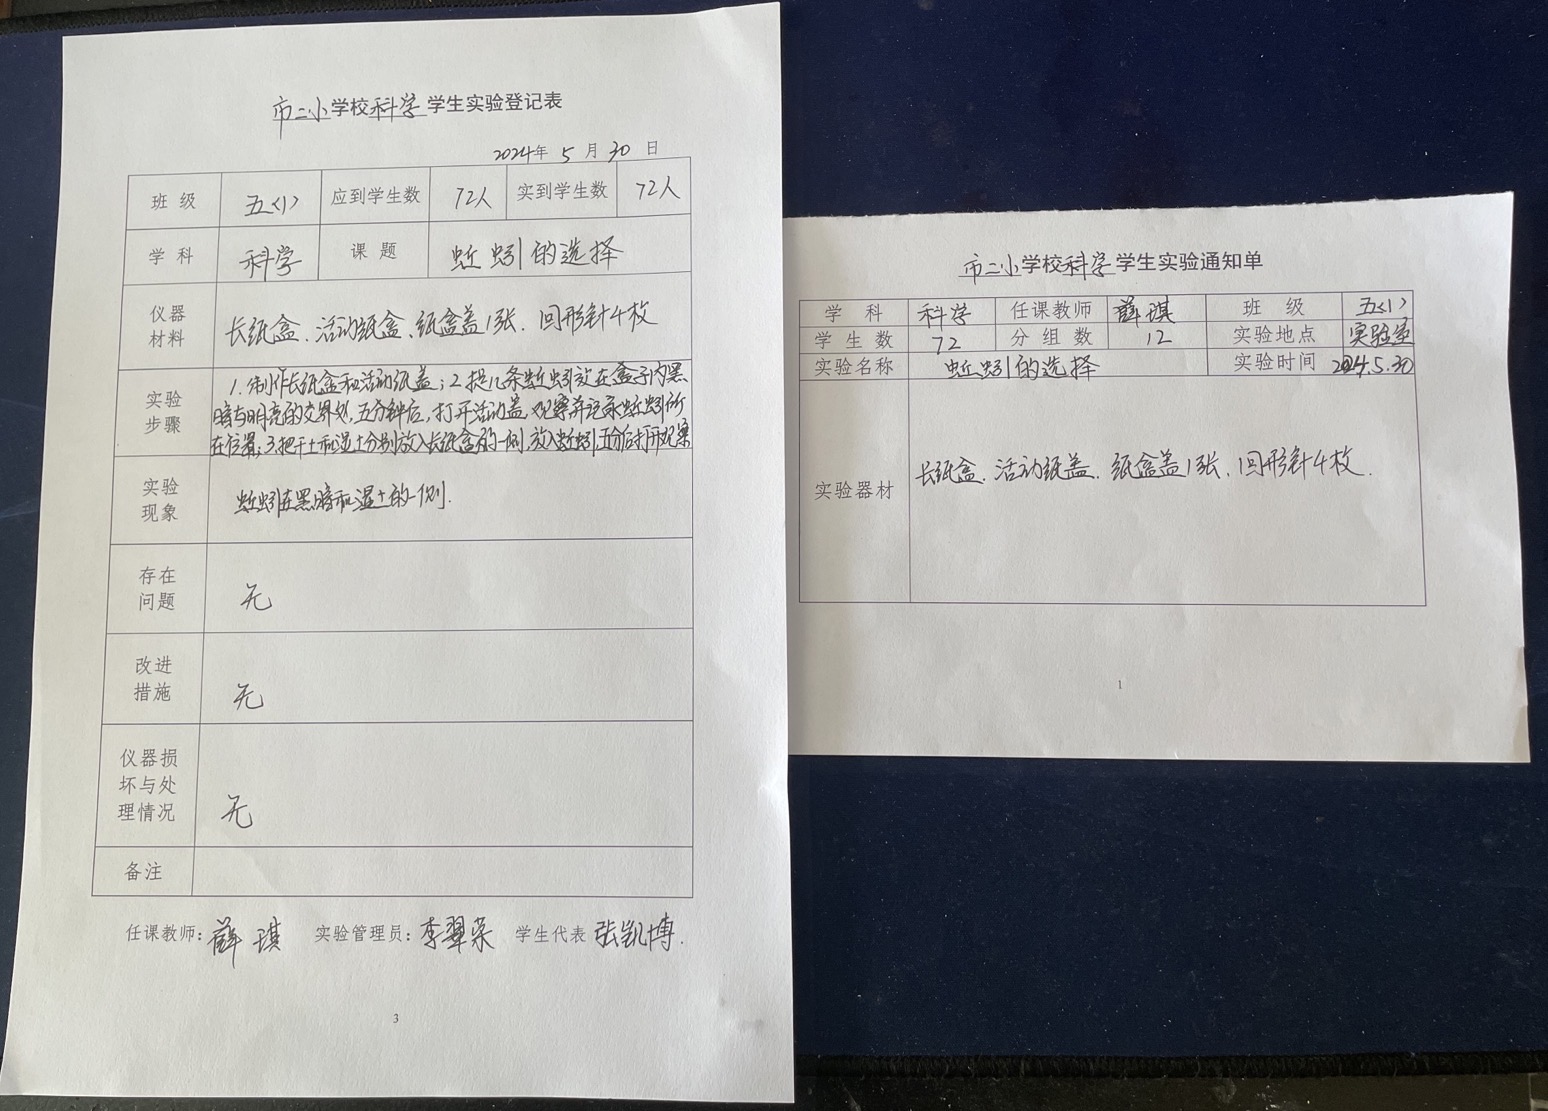 市二小学校科学学生实验登记表
2024年 5 月 30 日
班级 五<1> 应到学生数 72人 实到学生数 72人
学科 科学 课题 蚯蚓的选择
仪器材料 长纸盒、活动纸盒、纸盒盖1张、回形针4枚
实验步骤 1.制作长纸盒和活动纸盖;2.提几条蚯蚓放在盒子内黑
暗与明亮的交界处,五分钟后,打开活动盖,观察并记录蚯蚓所
在位置;3.把干土和湿土分别放入长纸盒的一侧,放入蚯蚓,五分后打开观察
实验现象 蚯蚓在黑暗和湿土的一侧.
存在问题 无
改进措施 无
仪器损坏与处理情况 无
备注
任课教师:薛琪 实验管理员:李翠荣 学生代表 张凯博.
3
市二小学校科学学生实验通知单
学科 科学 任课教师 薛琪 班级 五<1>
学生数 72 分组数 12 实验地点 实验室
实验名称 蚯蚓的选择 实验时间 2024.5.30
实验器材 长纸盒、活动纸盖、纸盒盖1张、回形针4枚.
1